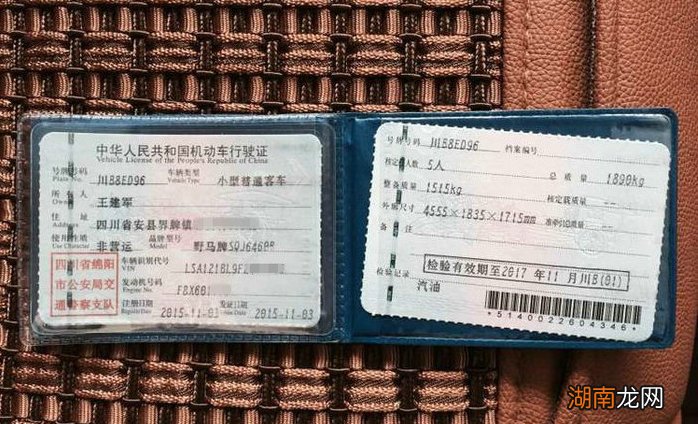 中华人民共和国机动车行驶证
Vehicle License of the People's Republic of China
号牌号码 川B8ED96 车辆类型 小型普通客车
Plate No. Vehicle Type
所有人 王建军
Owner
住址 四川省安县界牌镇
Address
使用性质 非营运 品牌型号 野马牌SQJ6460B
Use Character Model
四川省绵阳
市公安局交
通警察支队
车辆识别代号 LSA121BL9F2
VIN
发动机号码 FBX601
Engine No.
注册日期 2015-11-03 发证日期 2015-11-03
Register Date Issue Date
号牌号码 川B8ED96 档案编号
核定载人数 5人 总质量 1890kg
整备质量 1515kg 核定载质量
外廓尺寸 4555×1835×1715mm 准牵引总质量
备注
检验记录 检验有效期至2017年11月川B(01)
汽油
*5140022604346*
湖南龙网